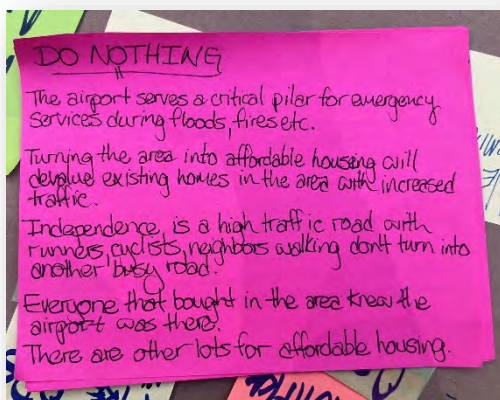 DO NOTHING
The airport serves a critical pilar for emergency
services during floods, fires etc.
Turning the area into affordable housing will
devalue existing homes in the area with increased
traffic.
Independence is a high traffic road with
runners, cyclists, neighbors walking don't turn into
another busy road.
Everyone that bought in the area knew the
airport was there.
There are other lots for affordable housing.